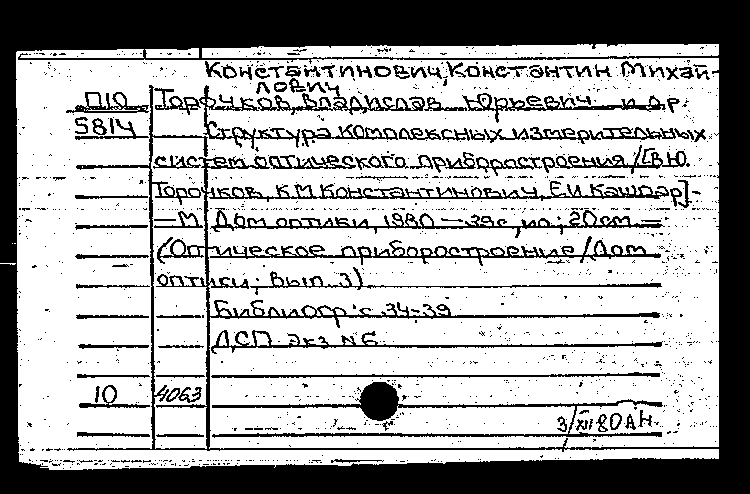 Константинович, Константин Михай-
лович
П10 Торочков, Владислав Юрьевич и др.
5814 Структура комплексных измерительных
систем оптического приборостроения / [В.Ю.
Торочков, К.М. Константинович, Е.И. Кашпар] -
— М.: Дом оптики, 1980 — 39 с., ил.; 20 см. —
(Оптическое приборостроение / Дом
оптики; Вып. 3)
Библиогр.: с. 34-39
ДСП Экз. № 6
10 4063
3/XII 80 АН.